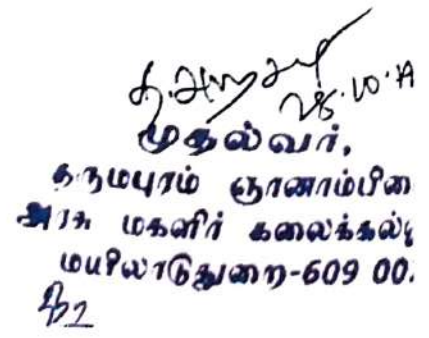 28.10.19
முதல்வர்,
தருமபுரம் ஞானாம்பிகை
அரசு மகளிர் கலைக்கல்
மயிலாடுதுறை-609 00